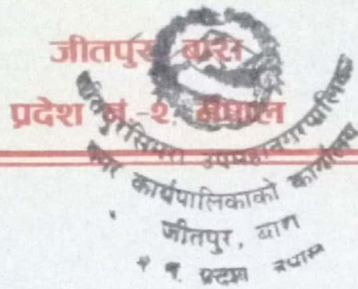 जीतपुर बारा
प्रदेश नं.-२, नेपाल
जीतपुरसिमरा उपमहानगरपालिका
नगर कार्यपालिकाको कार्यालय
जीतपुर, बारा